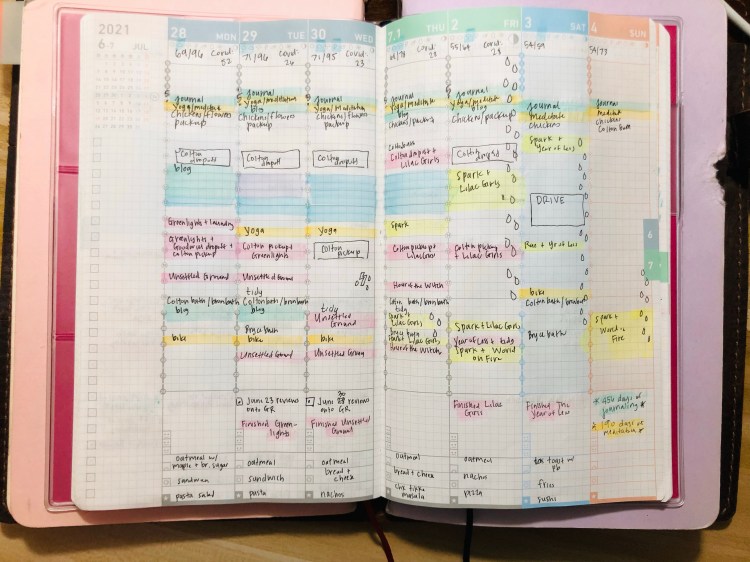 2021
6-7 JUL
28 MON
69/96 Covid:
52
journal
yoga/meditate
Chickens/flowers
packup
Colton
dropoff
blog
Greenlights + laundry
Greenlights +
dropoff +
colton pickup
Unsettled Ground
Colton bath/
blog
bike
oatmeal w/
maple + br. sugar
sandwich
pasta salad
29 TUE
71/96 Covid:
26
journal
yoga/meditation
blog
Chickens/flowers
packup
Colton
dropoff
yoga
Colton pickup +
Greenlights
Unsettled Ground
tidy
Colton bath/
blog
Bryce bath
bike
Unsettled Ground
June 23 reviews
onto GR
Finished Green-
lights
oatmeal
sandwich
pasta
30 WED
71/95 Covid:
23
journal
yoga/meditate
Chickens/flowers
packup
Colton
dropoff
yoga
Colton
pickup
tidy
Unsettled
Ground
bike
Unsettled Ground
June
reviews
onto GR
Finished Unsettled
Ground
oatmeal
bread +
cheese
nachos
7.1 THU
Covid:
28
journal
yoga/meditate
blog
chickens/packup
Colton dropoff +
Lilac Girls
Spark
Colton pickup +
Lilac Girls
Hour of the Witch
tidy
Spark +
Lilac Girls
Bryce bath
Spark + Lilac Girls
Hour of the Witch
oatmeal
bread + cheese
tikka
masala
2 FRI
55/64 Covid:
28
journal
yoga/meditate
blog
Chickens/packup
Colton dropoff
Spark +
Lilac Girls
Colton pickup
+ Lilac Girls
Spark + Lilac Girls
Year of Less + tidy
Spark + World
on Fire
Finished Lilac
Girls
oatmeal
nachos
pizza
3 SAT
54/59
journal
Meditate
Chickens
Spark +
Year of Less
DRIVE
+ Yr of Less
bike
Colton bath/
Bryce bath
Finished The
Year of Less
toast w/
pb
fries
sushi
4 SUN
54/73
journal
Meditate
chickens
Colton bath
Spark +
World on
Fire
* 456 days of
journaling *
* 190 days of
meditation *
6
7